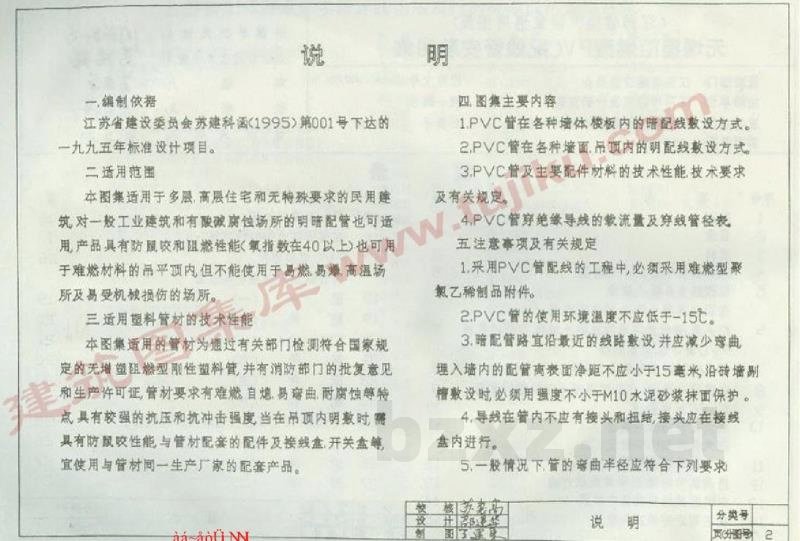 说 明
一.编制依据
江苏省建设委员会苏建科函(1995)第001号下达的
一九九五年标准设计项目。
二.适用范围
本图集适用于多层.高层住宅和无特殊要求的民用建
筑,对一般工业建筑和有酸碱腐蚀场所的明暗配管也可适
用,产品具有防鼠咬和阻燃性能(氧指数在40以上)也可用
于难燃材料的吊平顶内,但不能使用于易燃.易爆.高温场
所及易受机械损伤的场所。
三.适用塑料管材的技术性能
本图集适用的管材为通过有关部门检测符合国家规
定的无增塑阻燃型刚性塑料管,并有消防部门的批复意见
和生产许可证,管材要求有难燃.自熄.易弯曲.耐腐蚀等特
点,具有较强的抗压和抗冲击强度,当在吊顶内明敷时,需
具有防鼠咬性能,与管材配套的配件及接线盒.开关盒等,
宜使用与管材同一生产厂家的配套产品。
四.图集主要内容
1.PVC管在各种墙体.楼板内的暗配线敷设方式。
2.PVC管在各种墙面.吊顶内的明配线敷设方式。
3.PVC管及主要配件材料的技术性能.技术要求
及有关规定。
4.PVC管穿绝缘导线的载流量及穿线管径表。
五.注意事项及有关规定
1.采用PVC管配线的工程中,必须采用难燃型聚
氯乙稀制品附件。
2.PVC管的使用环境温度不应低于-15℃。
3.暗配管路宜沿最近的线路敷设,并应减少弯曲,
埋入墙内的配管离表面净距不应小于15毫米,沿砖墙剔
槽敷设时,必须用强度不小于M10水泥砂浆抹面保护。
4.导线在管内不应有接头和扭结,接头应在接线
盒内进行。
5.一般情况下,管的弯曲半径应符合下列要求:
校 核
设 计
制 图
说 明
分类号
页(分图号) 2
建筑图集库 www.tujiku.com
bzxz.net